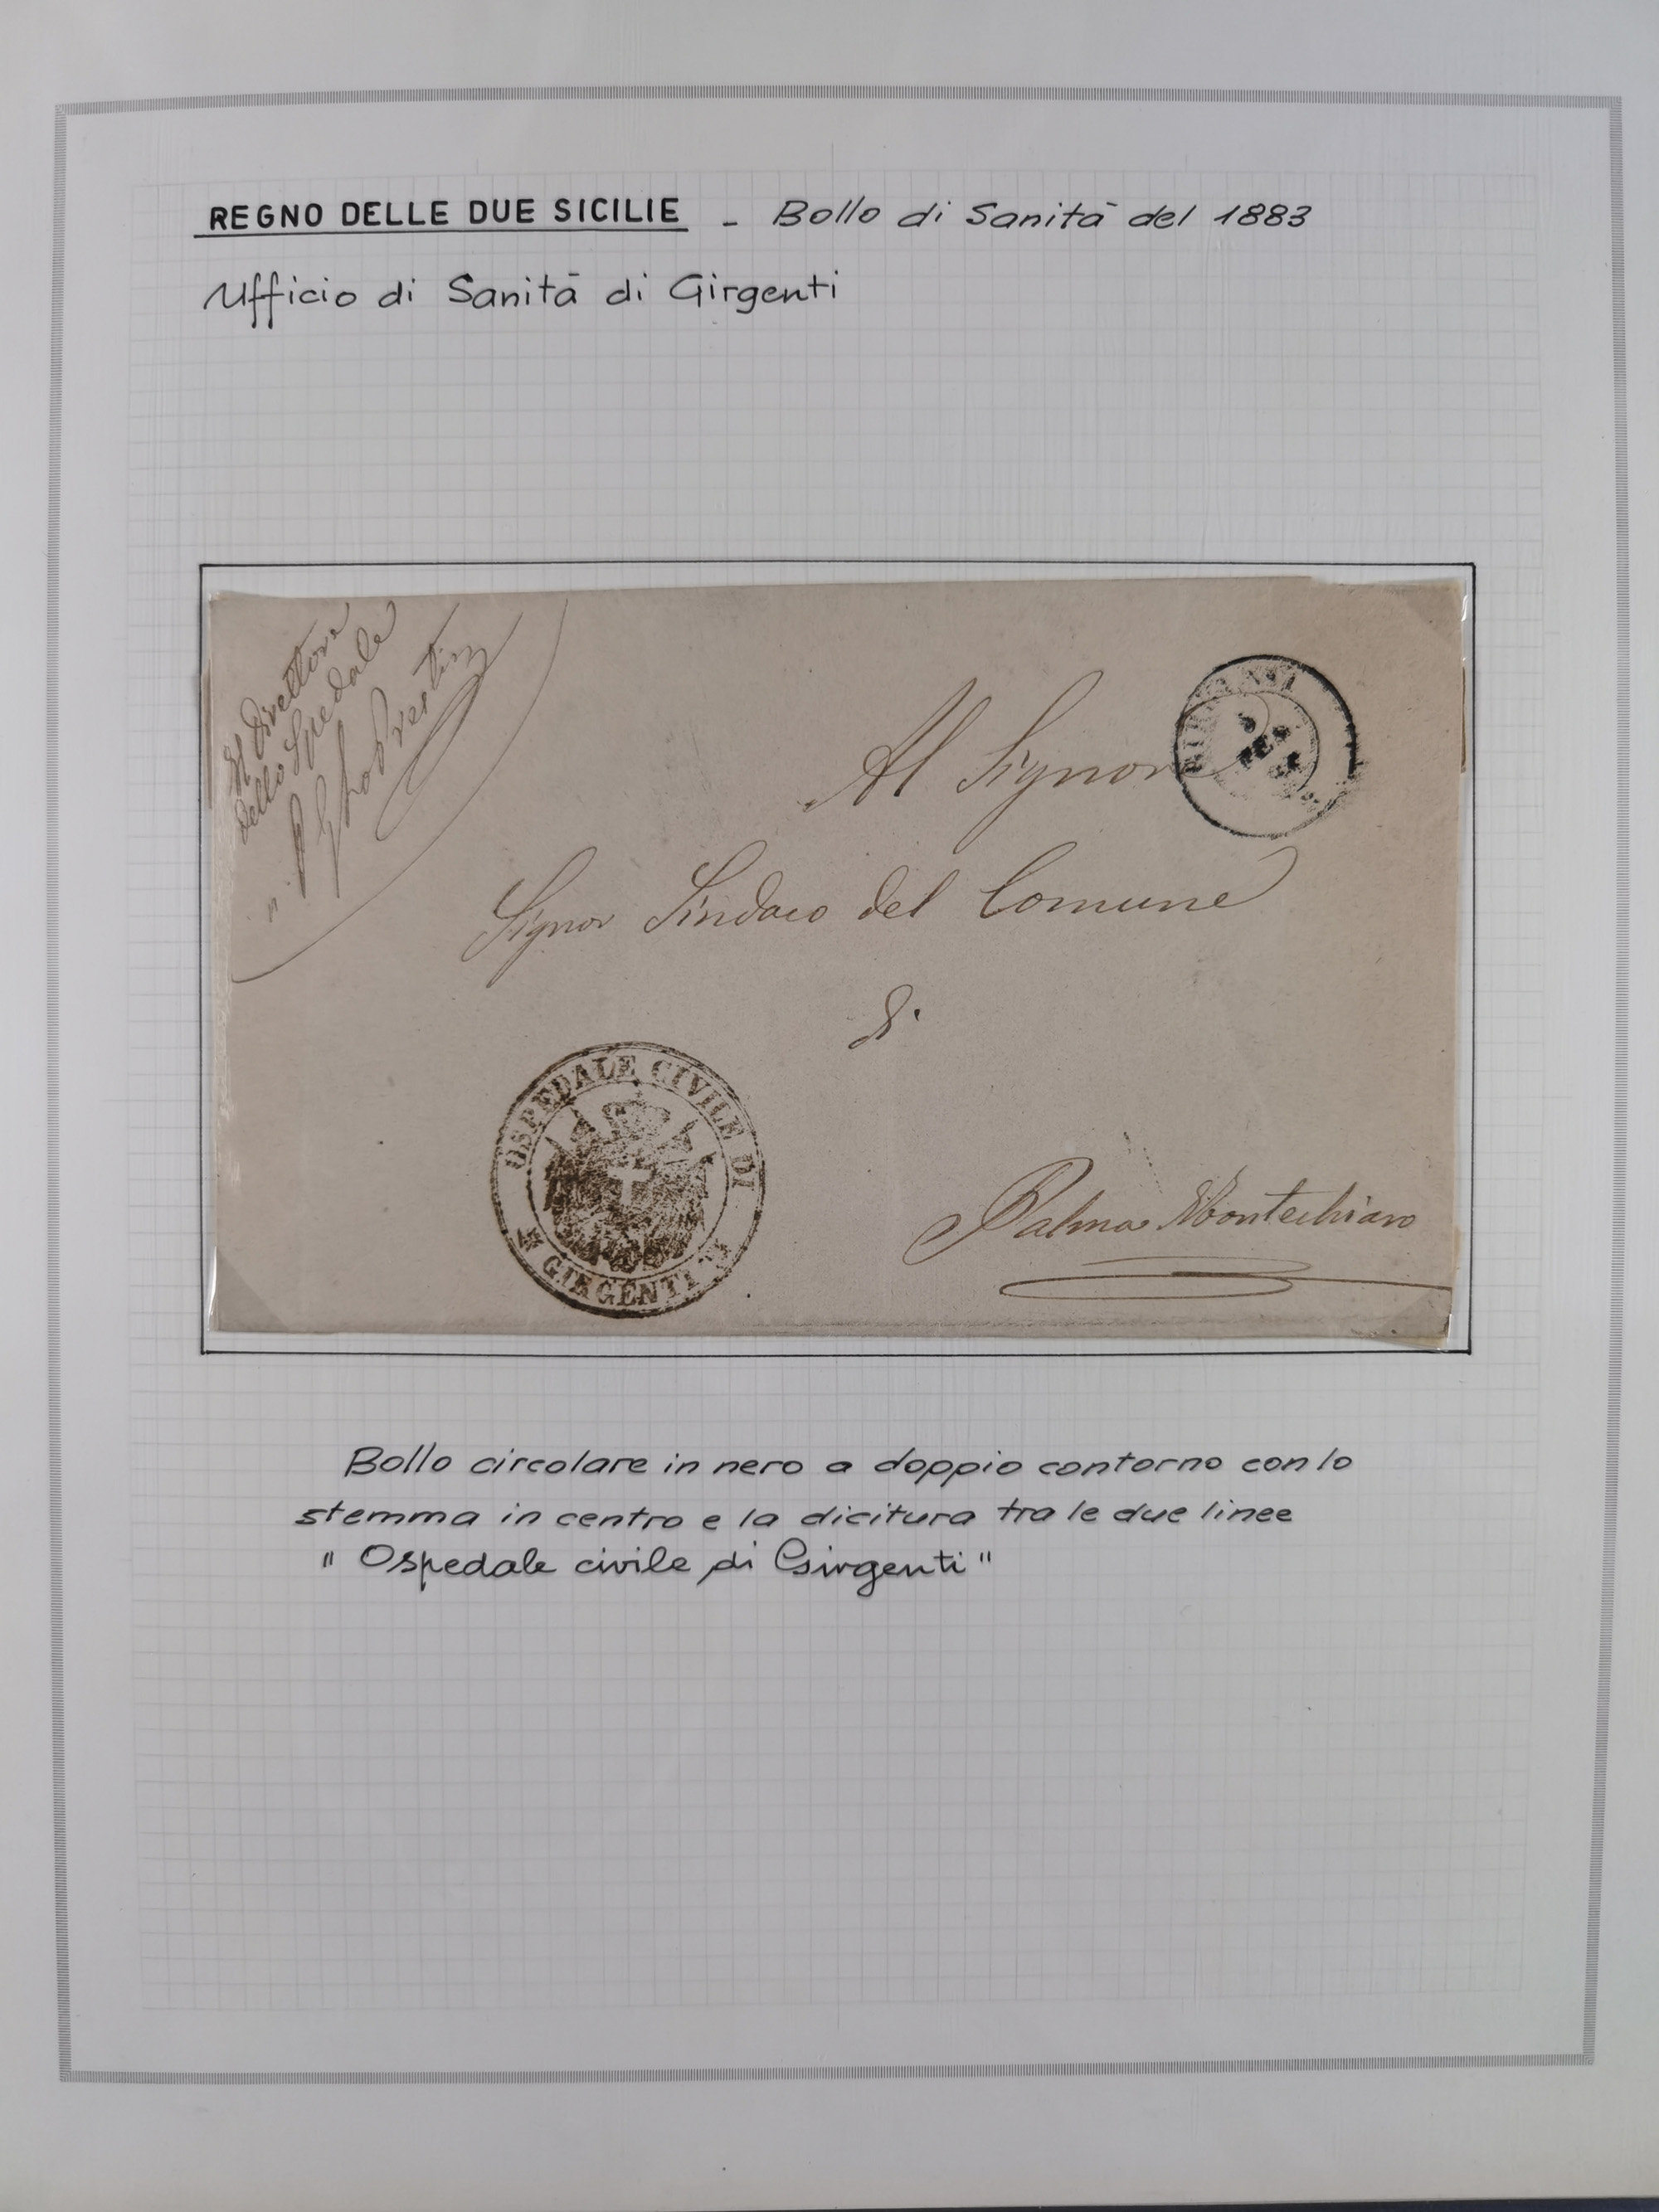 REGNO DELLE DUE SICILIE - Bollo di Sanità del 1883
Ufficio di Sanità di Girgenti
Il Direttore
dello Spedale
Al Signore
GIRGENTI
Signor Sindaco del Comune
di
OSPEDALE CIVILE DI
GIRGENTI
Palma Montechiaro
Bollo circolare in nero a doppio contorno con lo
stemma in centro e la dicitura tra le due linee
" Ospedale civile di Girgenti "